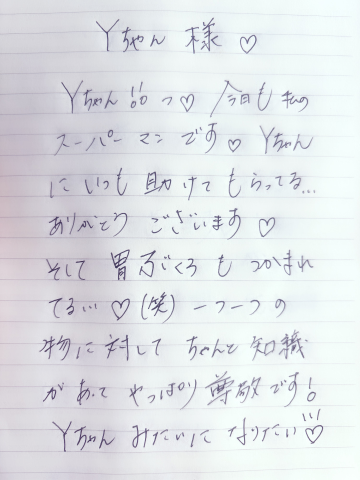 Yちゃん 様 ♡
Yちゃん!!! っ♡ 今日も私の
スーパーマンです♡ Yちゃん
にいつも助けてもらってる…
ありがとうございます♡
そして胃ぶくろもつかまれ
てる…♡(笑) 一つ一つの
物に対してちゃんと知識
があってやっぱり尊敬です!
Yちゃんみたいになりたい♡